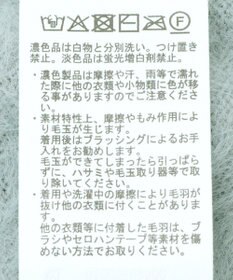 濃色品は白物と分別洗い。つけ置き
禁止。淡色品は蛍光増白剤禁止。
・濃色製品は摩擦や汗、雨等で濡れ
た際に他の衣類や小物類に色が移
る事がありますのでご注意くださ
い。
・素材特性上、摩擦やもみ作用によ
り毛玉が生じます。
着用後はブラッシングによるお手
入れをお勧めします。
毛玉ができてしまったら引っぱら
ずに、ハサミや毛玉取り器等で取
り除いてください。
・着用や洗濯中の摩擦により毛羽が
抜けて他の衣類に付くことがあり
ます。
他の衣類等に付着した毛羽は、ブ
ラシやセロハンテープ等素材を傷
めない方法でお取りください。